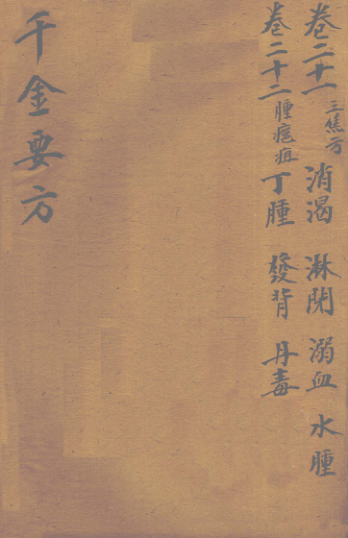 卷二十一 三焦方 消渴 淋閉 溺血 水腫
卷二十二 腫癌疽 丁腫 發背 丹毒
千金要方